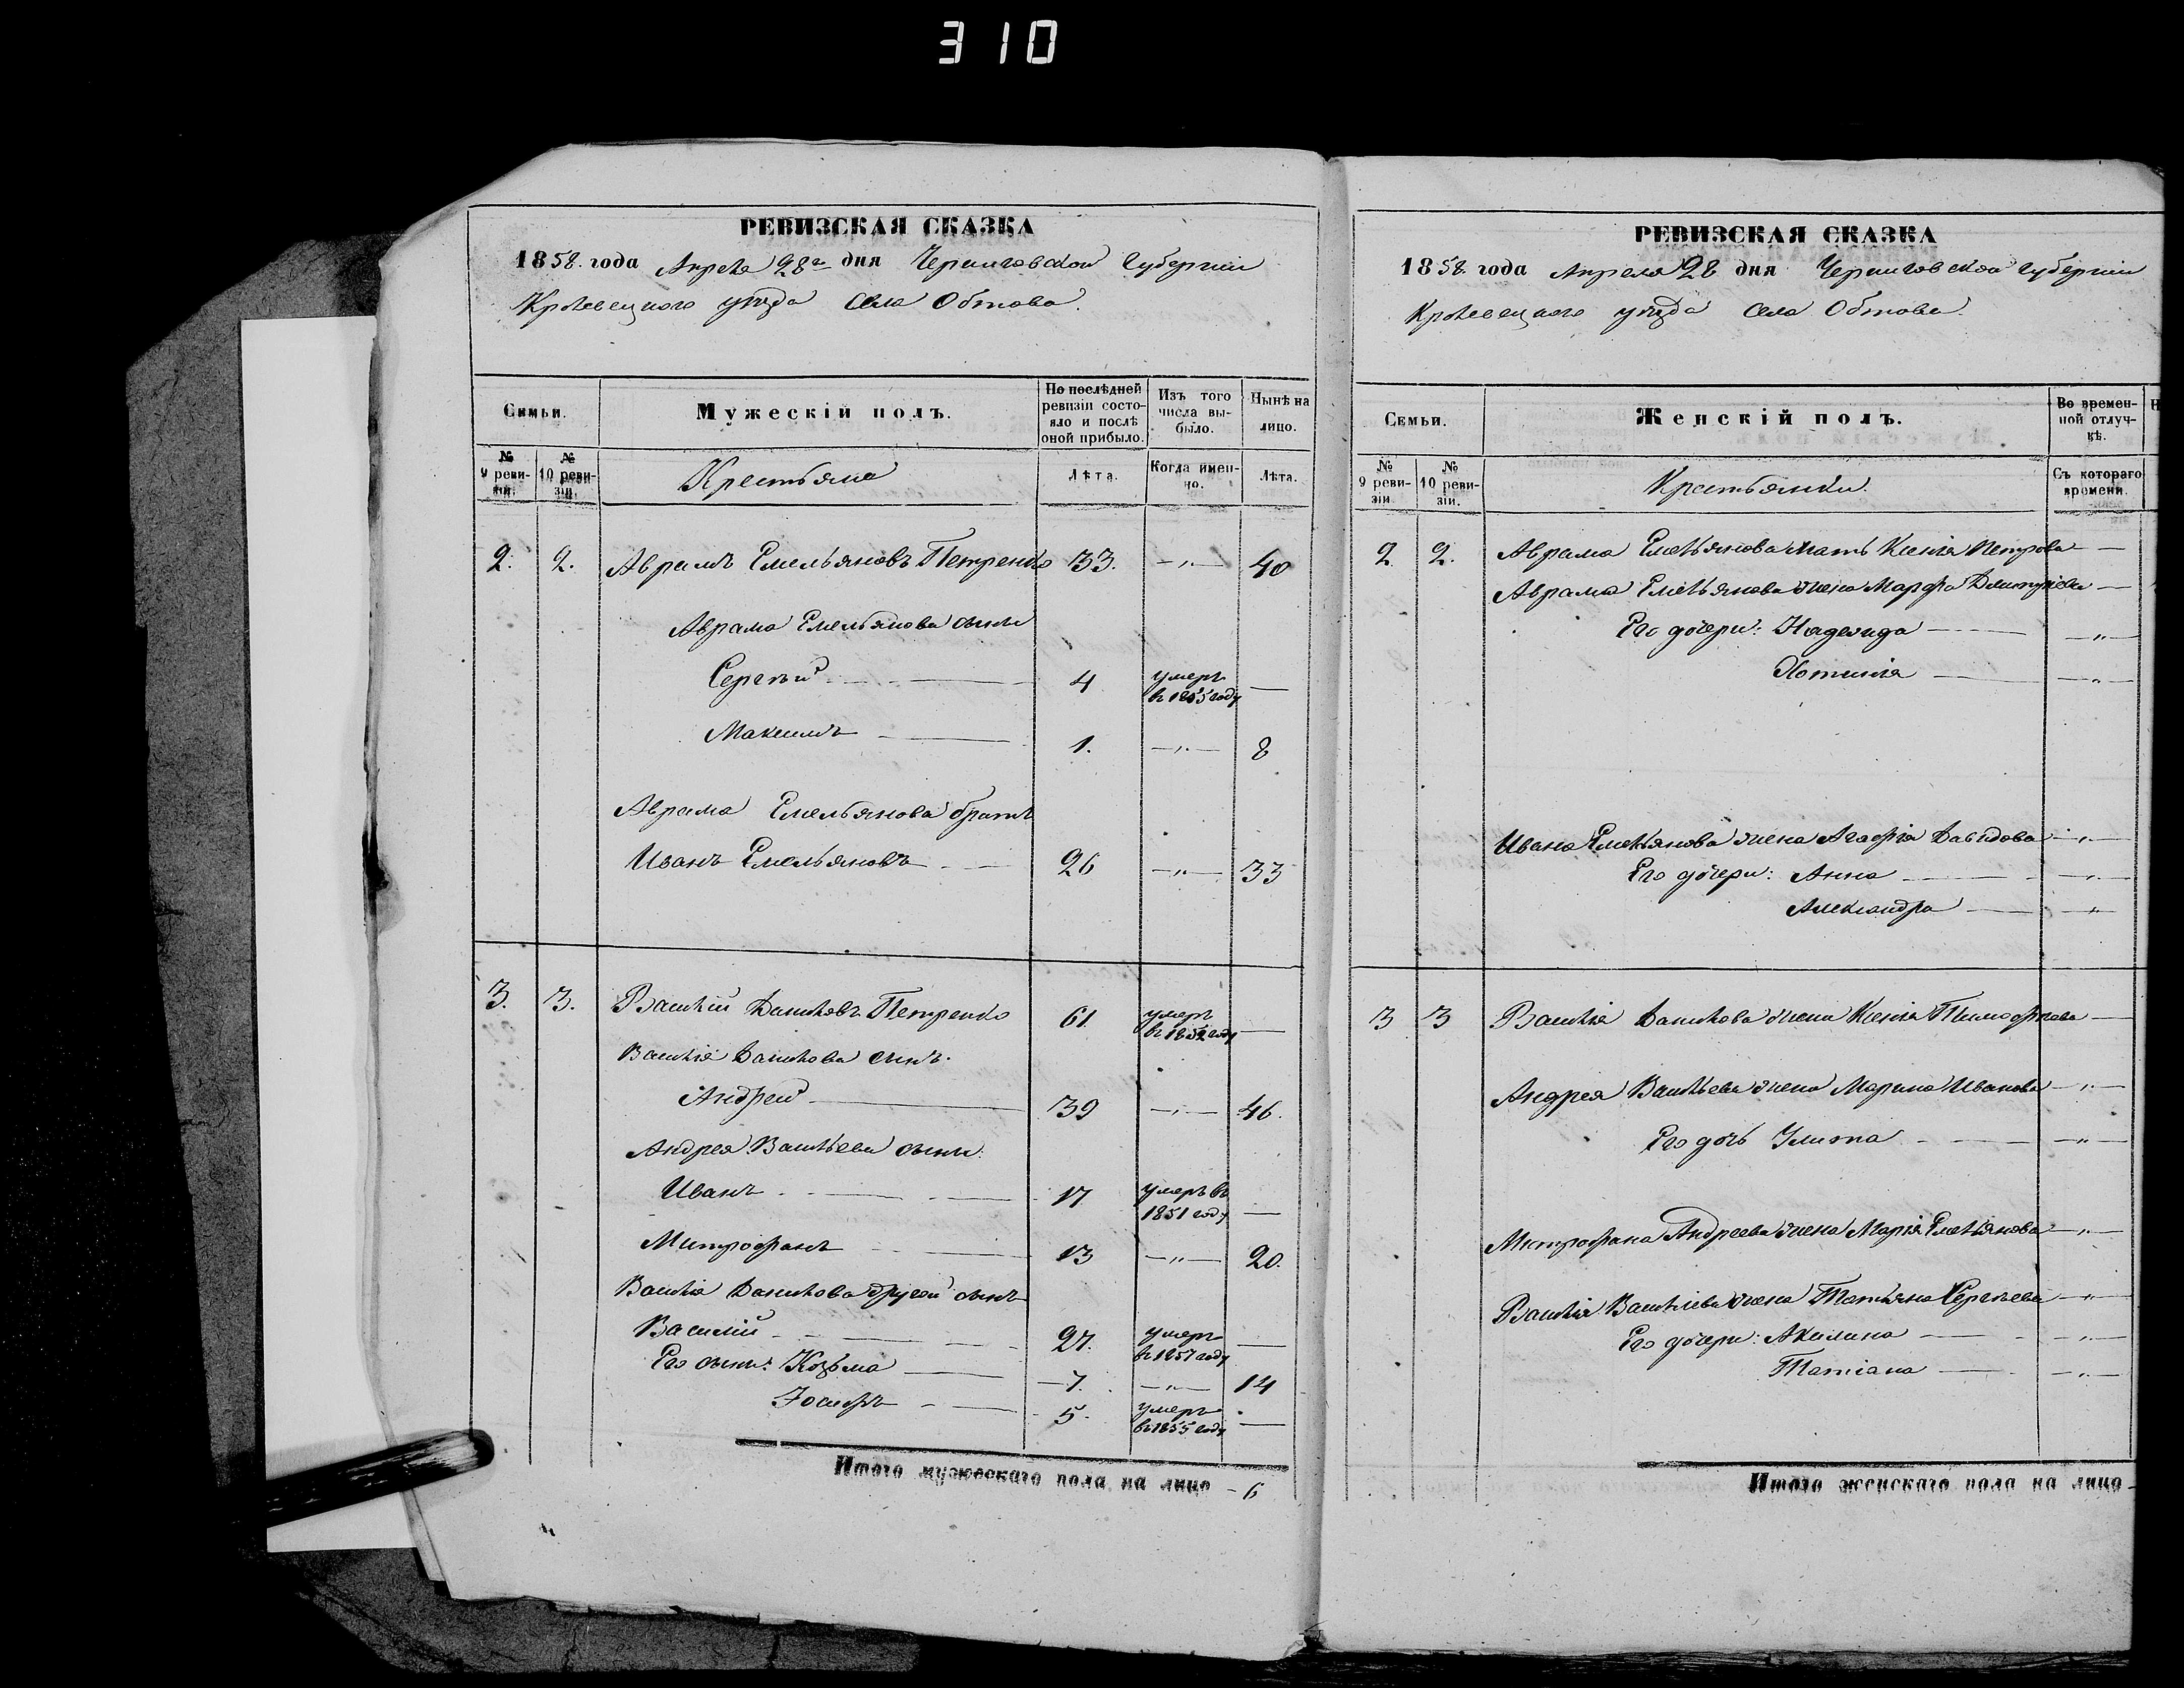 310
РЕВИЗСКАЯ СКАЗКА
1858. года Апреля 28го дня Черниговской Губернии
Кролевецкого уѣзда Села Обтова.
Семьи.
Мужескій полъ.
По послѣдней ревизіи состояло и послѣ оной прибыло.
Изъ того числа выбыло.
Нынѣ на лицо.
№ 9 ревизіи.
№ 10 ревизіи.
Крестьяне
Лѣта.
Когда именно.
Лѣта.
2. 2. Аврамъ Емельяновъ Петренко 33. —„— 40
Аврама Емельянова сыны
Сергѣй 4 умеръ въ 1855 году —
Максимъ 1. —„— 8
Аврама Емельянова братъ
Иванъ Емельяновъ 26 —„— 33
3. 3. Василій Даниловъ Петренко 61 умеръ въ 1852 году —
Василія Данилова сынъ.
Андрей 39 —„— 46.
Андрея Васильева сыны:
Иванъ 17 умеръ въ 1851 году —
Митрофанъ 13 —„— 20.
Василія Данилова другой сынъ
Василій 27. умеръ въ 1857 году —
Его сыны: Козьма 7. —„— 14
Іосифъ 5. умеръ въ 1855 году —
Итого мужескаго пола на лицо - 6
РЕВИЗСКАЯ СКАЗКА
1858 года Апреля 28 дня Черниговской Губерніи
Кролевецкого уѣзда Села Обтова.
Семьи.
Женскій полъ.
Во временной отлучкѣ.
Н
№ 9 ревизіи
№ 10 ревизіи.
Крестьянки.
Съ котораго времени.
2 2. Аврама Емельянова мать Ксенія Петрова —
Аврама Емельянова жена Марфа Димитріева —
Его дочери: Надежда —„—
Фотинія —„—
Ивана Емельянова жена Агафія Давидова —„—
Его дочери: Анна —„—
Александра —„—
3 3 Василія Данилова жена Ксенія Тимофѣева —
Андрея Васильева жена Марина Иванова —„—
Его дочь Улита —„—
Митрофана Андреева жена Марія Емельянова —„—
Василія Васильева жена Татьяна Сергѣева —„—
Его дочери: Акилина —„—
Татіана —„—
Итого женскаго пола на лицо